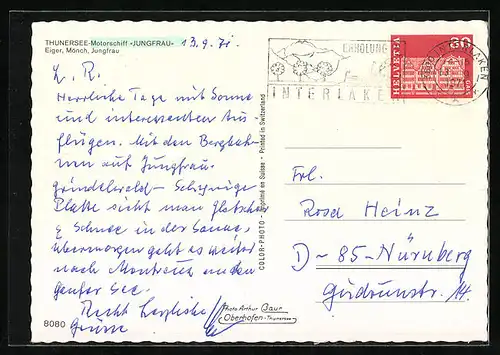 THUNERSEE-Motorschiff «JUNGFRAU»
Eiger, Mönch, Jungfrau
13.9.71
L. R.
Herrliche Tage mit Sonne
und interessanten Aus
flügen. Mit den Bergbah
nen auf Jungfrau
Grindelwald – Schynige
Platte sieht man Gletscher
& Schnee in der Sonne,
übermorgen geht es weiter
nach Montreux an den
Genfer See.
Recht herzliche
Grüsse
8080
Photo Arthur Baur
Oberhofen-Thunersee
COLOR-PHOTO - Imprimé en Suisse - Printed in Switzerland
ERHOLUNG
INTERLAKEN
HELVETIA
30
INTERLAKEN
Frl.
Rosa Heinz
D-85-Nürnberg
Gudrunstr. 14